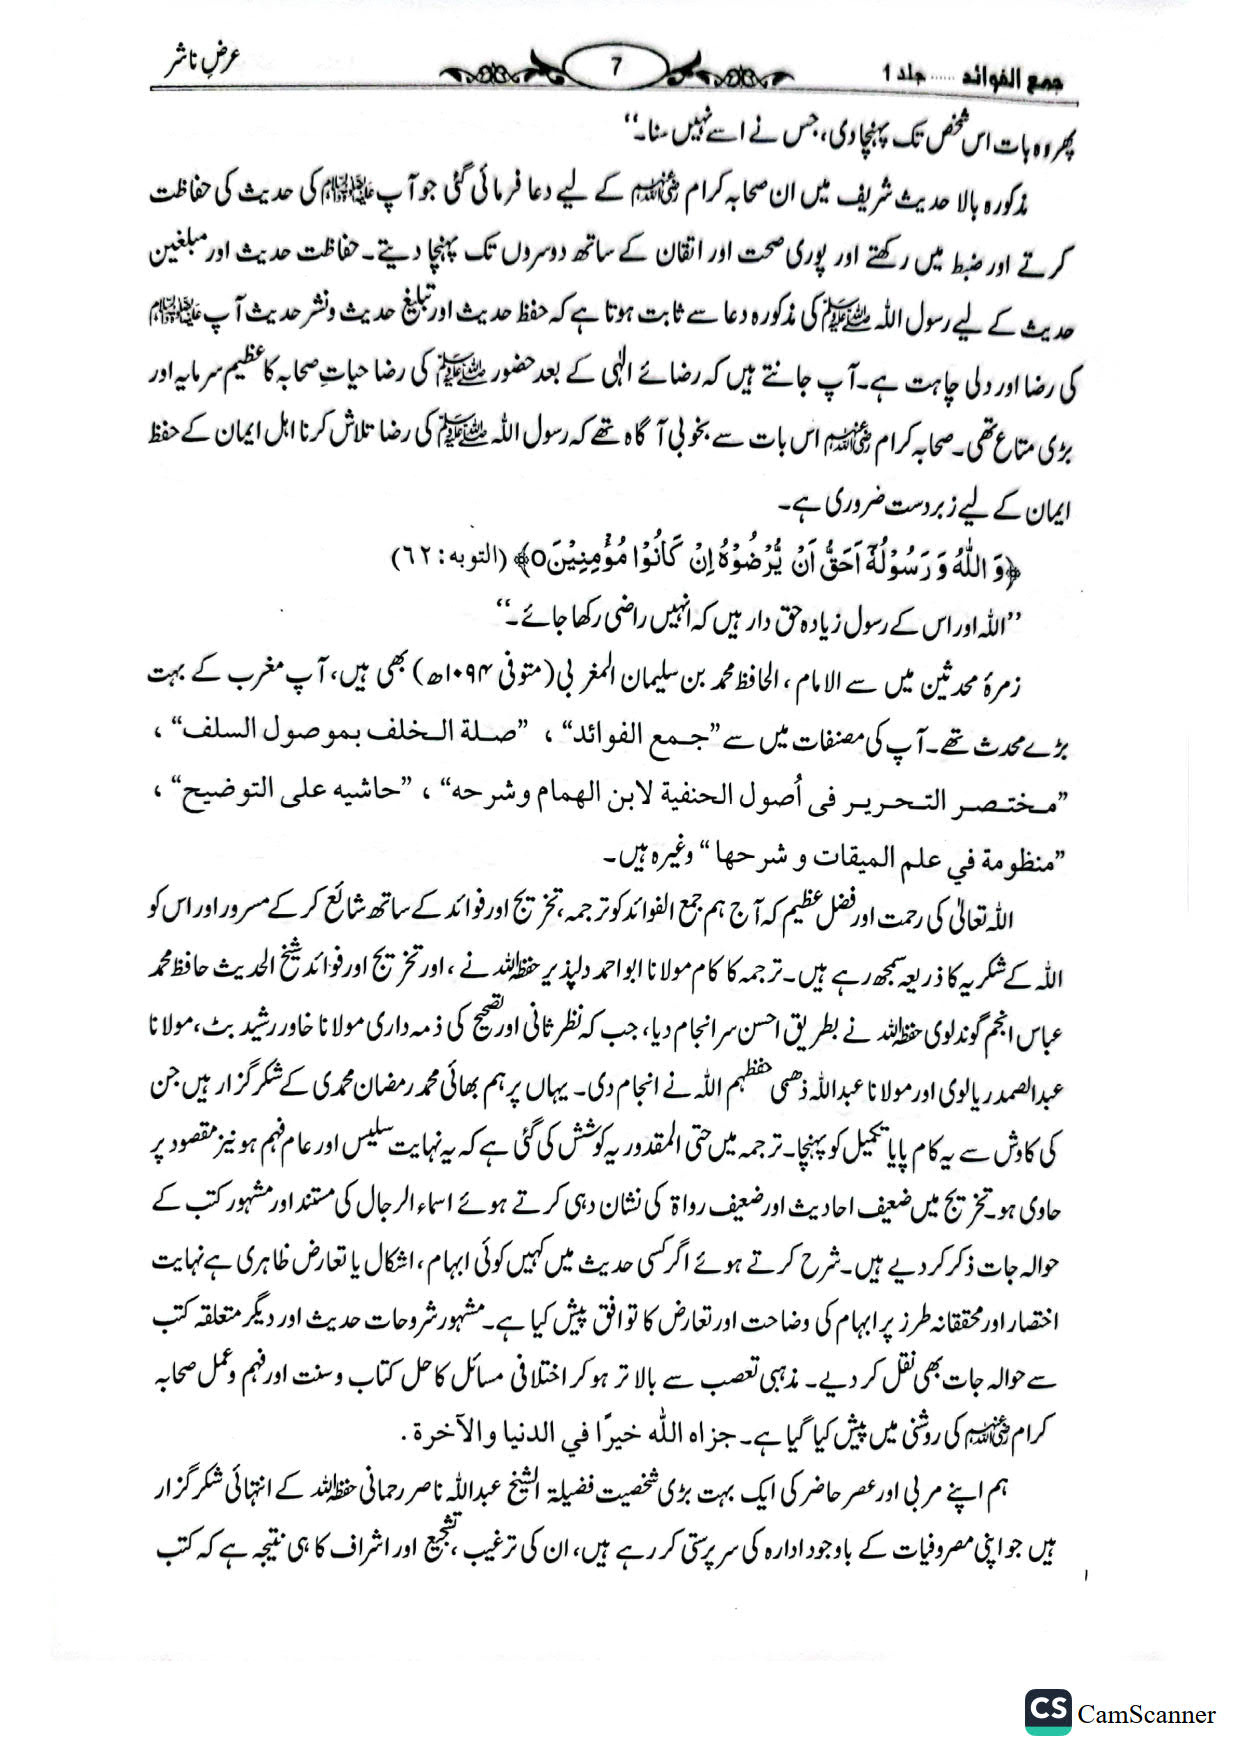 جمع الفوائد ..... جلد 1
7
عرضِ ناشر
پھر وہ بات اس شخص تک پہنچا دی، جس نے اسے نہیں سنا۔“
مذکورہ بالا حدیث شریف میں ان صحابہ کرام رضی اللہ عنہم کے لیے دعا فرمائی گئی جو آپ صلی اللہ علیہ وسلم کی حدیث کی حفاظت
کرتے اور ضبط میں رکھتے اور پوری صحت اور اتقان کے ساتھ دوسروں تک پہنچا دیتے۔ حفاظت حدیث اور مبلغین
حدیث کے لیے رسول اللہ صلی اللہ علیہ وسلم کی مذکورہ دعا سے ثابت ہوتا ہے کہ حفظ حدیث اور تبلیغ حدیث ونشر حدیث آپ صلی اللہ علیہ وسلم
کی رضا اور دلی چاہت ہے۔ آپ جانتے ہیں کہ رضائے الٰہی کے بعد حضور صلی اللہ علیہ وسلم کی رضا حیاتِ صحابہ کا عظیم سرمایہ اور
بڑی متاع تھی۔ صحابہ کرام رضی اللہ عنہم اس بات سے بخوبی آگاہ تھے کہ رسول اللہ صلی اللہ علیہ وسلم کی رضا تلاش کرنا اہل ایمان کے حفظ
ایمان کے لیے زبردست ضروری ہے۔
﴿وَ اللّٰهُ وَ رَسُوْلُهٗٓ اَحَقُّ اَنْ يُّرْضُوْهُ اِنْ كَانُوْا مُؤْمِنِيْنَ○﴾ (التوبه: ٦٢)
”اللہ اور اس کے رسول زیادہ حق دار ہیں کہ انہیں راضی رکھا جائے۔“
زمرۂ محدثین میں سے الامام، الحافظ محمد بن سلیمان المغربی (متوفی ۱۰۹۴ھ) بھی ہیں، آپ مغرب کے بہت
بڑے محدث تھے۔ آپ کی مصنفات میں سے ”جمع الفوائد“، ”صلة الخلف بموصول السلف“،
”مختصر التحریر فی أصول الحنفیة لابن الهمام وشرحه“، ”حاشیه علی التوضیح“،
”منظومة في علم المیقات و شرحها“ وغیرہ ہیں۔
اللہ تعالیٰ کی رحمت اور فضل عظیم کہ آج ہم جمع الفوائد کو ترجمہ، تخریج اور فوائد کے ساتھ شائع کر کے مسرور اور اس کو
اللہ کے شکریہ کا ذریعہ سمجھ رہے ہیں۔ ترجمہ کا کام مولانا ابو احمد دلپذیر حفظہ اللہ نے، اور تخریج اور فوائد شیخ الحدیث حافظ محمد
عباس انجم گوندلوی حفظہ اللہ نے بطریق احسن سرانجام دیا، جب کہ نظر ثانی اور تصحیح کی ذمہ داری مولانا خاور رشید بٹ، مولانا
عبدالصمد ریالوی اور مولانا عبداللہ ذھبی حفظہم اللہ نے انجام دی۔ یہاں پر ہم بھائی محمد رمضان محمدی کے شکر گزار ہیں جن
کی کاوش سے یہ کام پایا تکمیل کو پہنچا۔ ترجمہ میں حتی المقدور یہ کوشش کی گئی ہے کہ یہ نہایت سلیس اور عام فہم ہو نیز مقصود پر
حاوی ہو۔ تخریج میں ضعیف احادیث اور ضعیف رواۃ کی نشان دہی کرتے ہوئے اسماء الرجال کی مستند اور مشہور کتب کے
حوالہ جات ذکر کر دیے ہیں۔ شرح کرتے ہوئے اگر کسی حدیث میں کہیں کوئی ابہام، اشکال یا تعارض ظاہری ہے نہایت
اختصار اور محققانہ طرز پر ابہام کی وضاحت اور تعارض کا توافق پیش کیا ہے۔ مشہور شروحات حدیث اور دیگر متعلقہ کتب
سے حوالہ جات بھی نقل کر دیے۔ مذہبی تعصب سے بالا تر ہو کر اختلافی مسائل کا حل کتاب و سنت اور فہم و عمل صحابہ
کرام رضی اللہ عنہم کی روشنی میں پیش کیا گیا ہے۔ جزاه الله خيرًا في الدنيا والآخرة.
ہم اپنے مربی اور عصر حاضر کی ایک بہت بڑی شخصیت فضیلۃ الشیخ عبداللہ ناصر رحمانی حفظہ اللہ کے انتہائی شکر گزار
ہیں جو اپنی مصروفیات کے باوجود ادارہ کی سرپرستی کر رہے ہیں، ان کی ترغیب، تشجیع اور اشراف کا ہی نتیجہ ہے کہ کتب
CS CamScanner